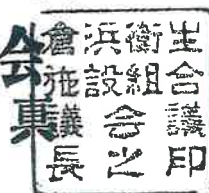 倉浜衛生
施設組合
議会議
長之印
会